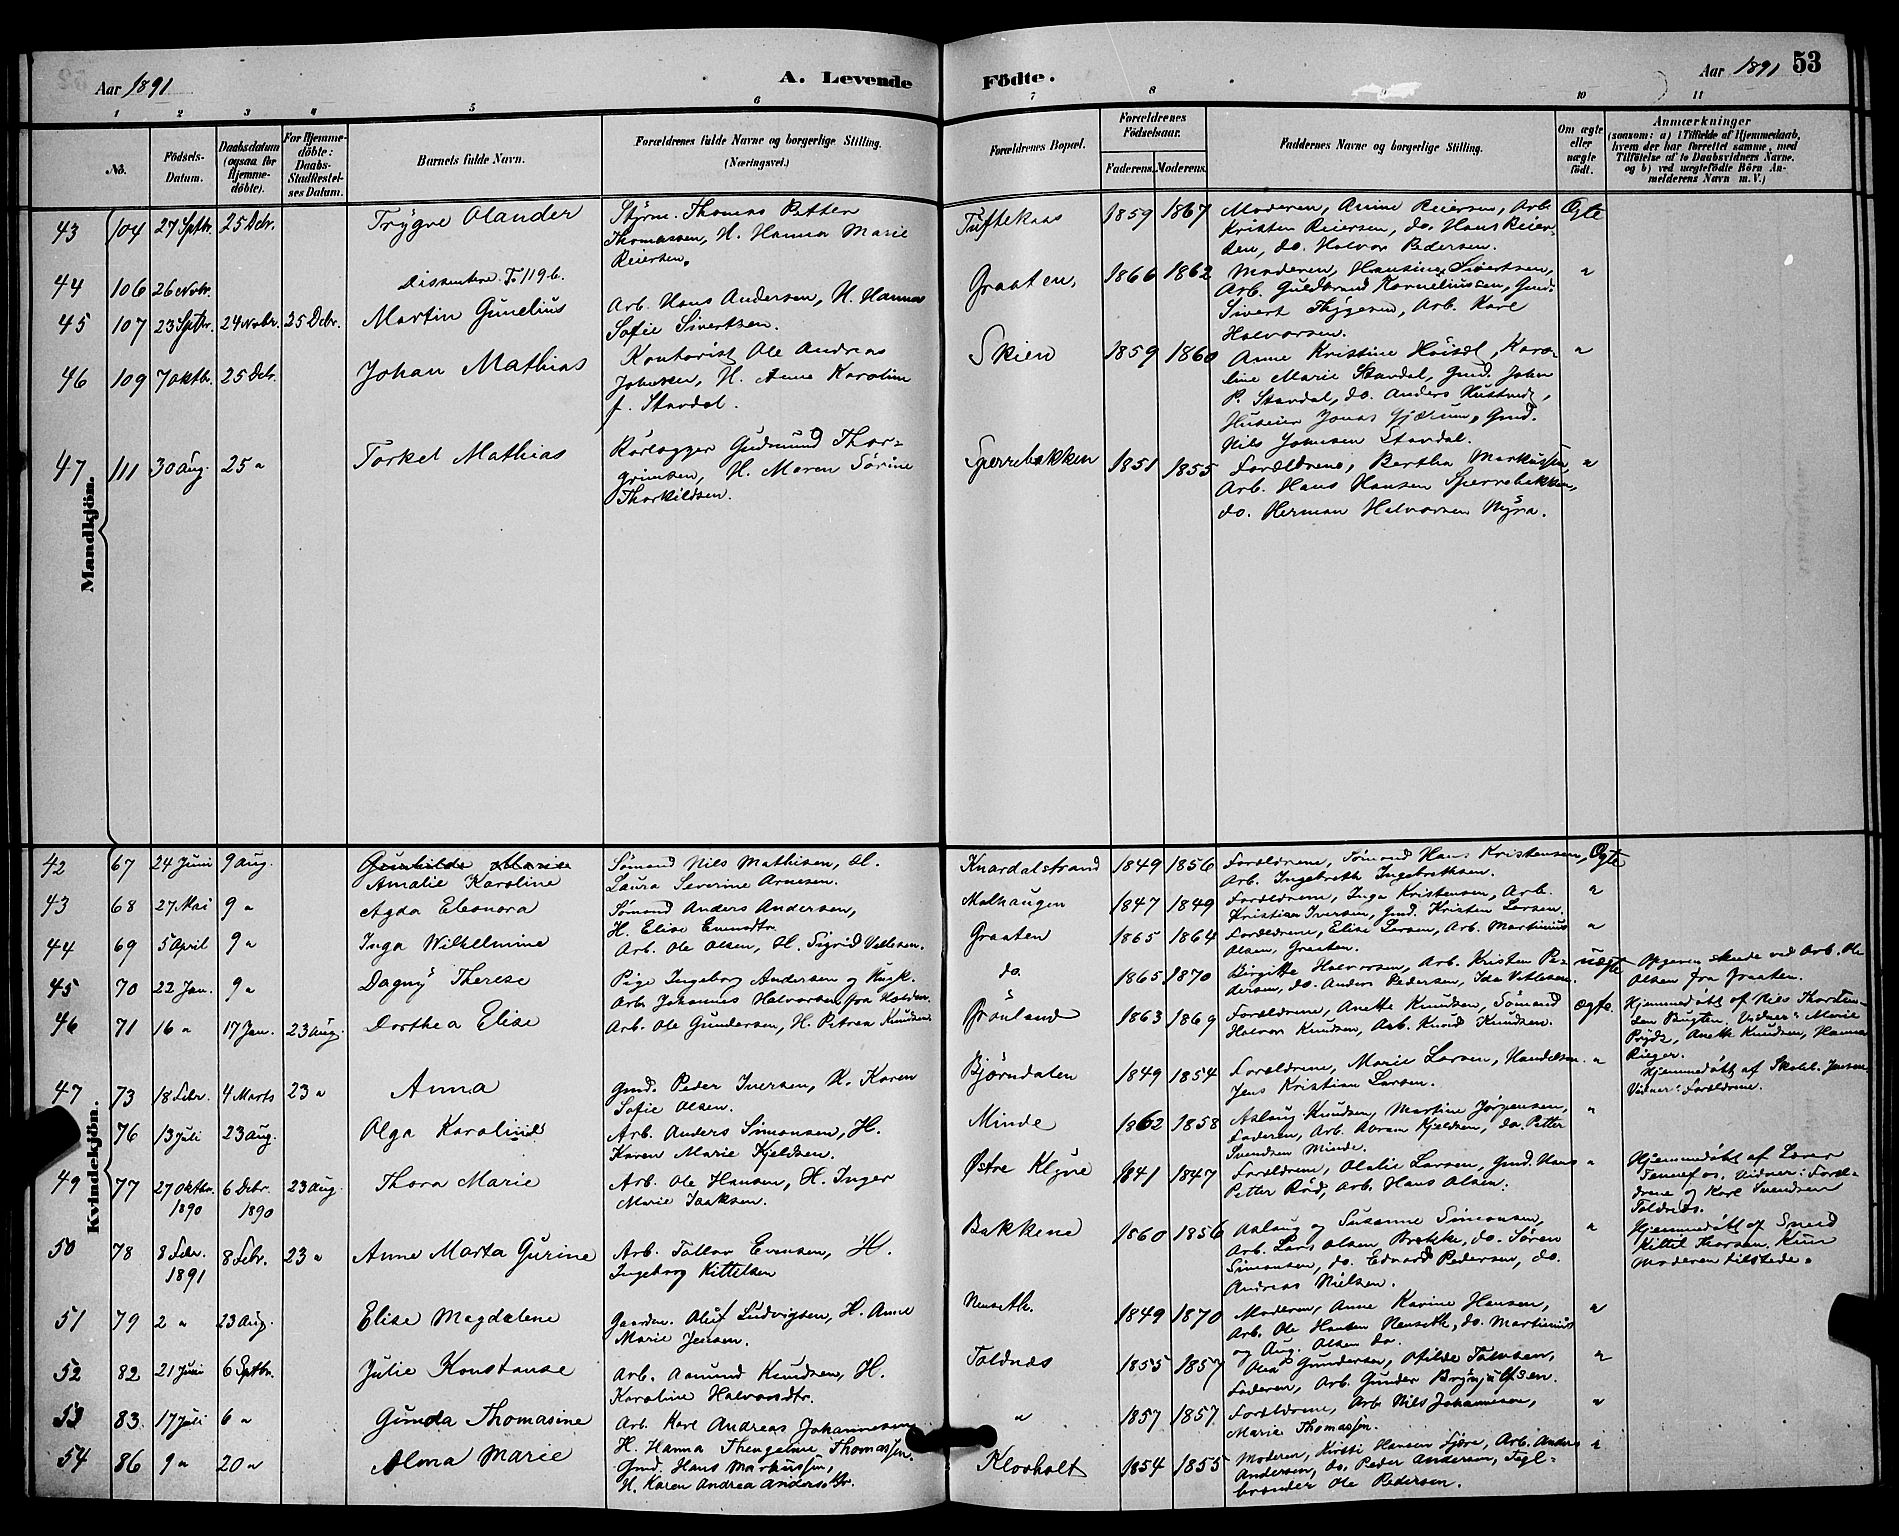 Aar 1891. A. Levende
Födte. Aar 1891 53
1 2 3 4 5 6 7 8 9 10 11
No.
Födsels-
Datum.
Daabsdatum
(ogsaa for
Hjemme-
döbte).
For Hjemme-
döbte:
Daabs-
Stadfæstel-
ses Datum.
Barnets fulde Navn.
Forældrenes fulde Navne og borgerlige Stilling.
(Næringsvei.)
Forældrenes Bopæl.
Forældrenes
Födselsaar.
Faderens. Moderens.
Faddernes Navne og borgerlige Stilling.
Om ægte
eller
uægte
födt.
Anmærkninger
(saasom: a) i Tilfælde af Hjemmedaab,
hvem der har forrettet samme, med
Tilföielse af to Daabsvidners Navne,
og b) ved uægtefödte Börn An-
melderens Navn m. V.)
Mandkjön.
43 104 27 Sptbr. 25 Dcbr. Trygve Olander
Styrm. Thomas Petter
Thomassen, H. Hanna Marie
Reiersen.
Tuftekaas 1859 1867
Moderen, Anne Reiersen, Arb.
Kristen Reiersen, do. Hans Reier-
sen, do. Halvor Pedersen.
Ægte
44 106 26 Novbr. Dissentere Fo 119 6.
45 107 23 Sptbr. 24 Novbr. 25 Dcbr. Martin Gunelius
Arb. Hans Andersen, H. Hanna
Sofie Sivertsen.
Graaten, 1866 1862
Moderen, Hansine Sivertsen,
Arb. Guldbrand Korneliussen, Gmd.
Sivert Thygesen, Arb. Karl
Halvorsen.
"
46 109 7 Oktbr. 25 Dcbr. Johan Mathias
Kontorist Ole Andreas
Johnsen, H. Anne Karoline
f. Stavdal.
Skien 1859 1860
Anne Kristine Høisæt, Karo-
line Marie Stavdal, Gmd. John
P. Stavdal, do. Anders Kustvedt,
Huseier Jonas Gjærum, Gmd.
Nils Johnsen Stavdal.
"
47 111 30 Aug. 25 " Torkel Mathias
Rørlægger Gudmund Thor-
grimsen, H. Maren Sørine
Thorkildsen.
Sperrebækken 1851 1855
Forældrene, Bertha Markussen,
Arb. Hans Hansen Sperrebækken,
do. Herman Halvorsen Myra.
"
Kvindekjön.
42 67 24 Juni 9 Aug. Gunhilde Marie
Amalie Karoline
Sømand Nils Mathisen, H.
Laura Severine Arnesen.
Knardalstrand 1849 1856
Forældrene, Sømand Hans Kristensen,
Arb. Ingebreth Ingebrethsen.
Ægte
43 68 27 Mai 9 " Agda Eleonora
Sømand Anders Andersen,
H. Elise Evensdtr.
Melhaugen 1847 1849
Forældrene, Inga Kristensen, Arb.
Kristian Iversen, Gmd. Kristen Larsen.
"
44 69 5 April 9 " Inga Wilhelmine
Arb. Ole Olsen, H. Sigrid Vetlesen.
Graaten 1865 1864
Forældrene, Elise Larsen, Arb. Martinius
Olsen, Graaten.
"
45 70 22 Jan. 9 " Dagny Therese
Pige Ingeborg Andersen og Ungk.
Arb. Johannes Halvorsen fra Holden.
do. 1865 1870
Birgitte Halvorsen, Arb. Kristen Pe-
dersen, do. Anders Pedersen, Ida Vetlesen.
uægte
Opgaven skede ved Arb. Ole
Olsen fra Graaten.
46 71 16 " 17 Jan. 23 Aug. Dorthea Elise
Arb. Ole Gundersen, H. Petrea Knudsen
Grønland 1863 1869
Forældrene, Anette Knudsen, Sømand
Halvor Knudsen, Arb. Knud Knudsen.
Ægte.
Hjemmedøbt af Nils Thorsten-
sen Bugten. Vidner: Marie
Prydz, Anette Knudsen, Hanna
Rieger.
47 73 18 Febr. 4 Marts 23 " Anna
Gmd. Peder Iversen, H. Karen
Sofie Olsen.
Bjørndalen 1849 1854
Forældrene, Marie Larsen, Handelsm.
Jens Kristian Larsen.
"
Hjemmedøbt af Skolel. Jensen
Vidner: Forældrene.
76 13 Juli 23 Aug. Olga Karoline
Arb. Anders Simonsen, H.
Karen Marie Kjeldsen.
Minde 1862 1858
Aslaug Knudsen, Martine Jørgensen,
Faderen, Arb. Abram Kjeldsen, do. Petter
Svendsen Minde.
"
49 77 27 Oktbr. 1890 6 Dcbr. 1890 23 Aug. Thora Marie
Arb. Ole Hansen, H. Inger
Marie Isaksen.
Østre Klyve 1841 1847
Forældrene, Olalie Larsen, Gmd. Hans
Petter Rød, Arb. Hans Olsen.
"
Hjemmedøbt af Lærer
Tennefos. Vidner: Foræl-
drene og Karl Svendsen
Toldnæs.
50 78 8 Febr. 1891 8 Febr. 23 " Anne Marta Gurine
Arb. Tallov Evensen, H.
Ingeborg Kittelsen
Bakkene 1860 1856
Aslaug og Susanne Simonsen,
Arb. Lars Olsen Brække, do. Søren
Simonsen, do. Edvard Pedersen, do.
Andreas Nielsen.
"
Hjemmedøbt af Smed
Kittil Thorsen. Kun
Moderen tilstede.
51 79 2 " 23 Aug. Elise Magdalene
Gaardm. Oluf Ludvigsen, H. Anne
Marie Jensen.
Nenseth. 1849 1870
Moderen, Anne Karine Hansen,
Arb. Ole Hansen Nenseth, do. Martinius
og Aug. Olsen do.
"
52 82 21 Juni 6 Sptbr. Julie Konstanse
Arb. Aamund Knudsen, H.
Karoline Halvorsdtr.
Toldnæs 1855 1857
Olea Gundersen, Otilde Tolvsen,
Faderen, Arb. Gunder Brynjulfsen.
"
53 83 17 Juli 6 " Gunda Thomasine
Arb. Karl Andreas Johannesen
H. Hanna Thengeline Thomassen.
" 1857 1857
Forældrene, Arb. Nils Johannesen,
Marie Thomassen.
"
54 86 9 " 20 " Alma Marie
Gmd. Hans Markussen,
H. Karen Andrea Andersdtr.
Klovholt 1854 1855
Moderen, Kirsti Hansen Fjære, Arb. Anders
Andersen, do. Peder Andersen, Tegl-
brænder Ole Pedersen.
"